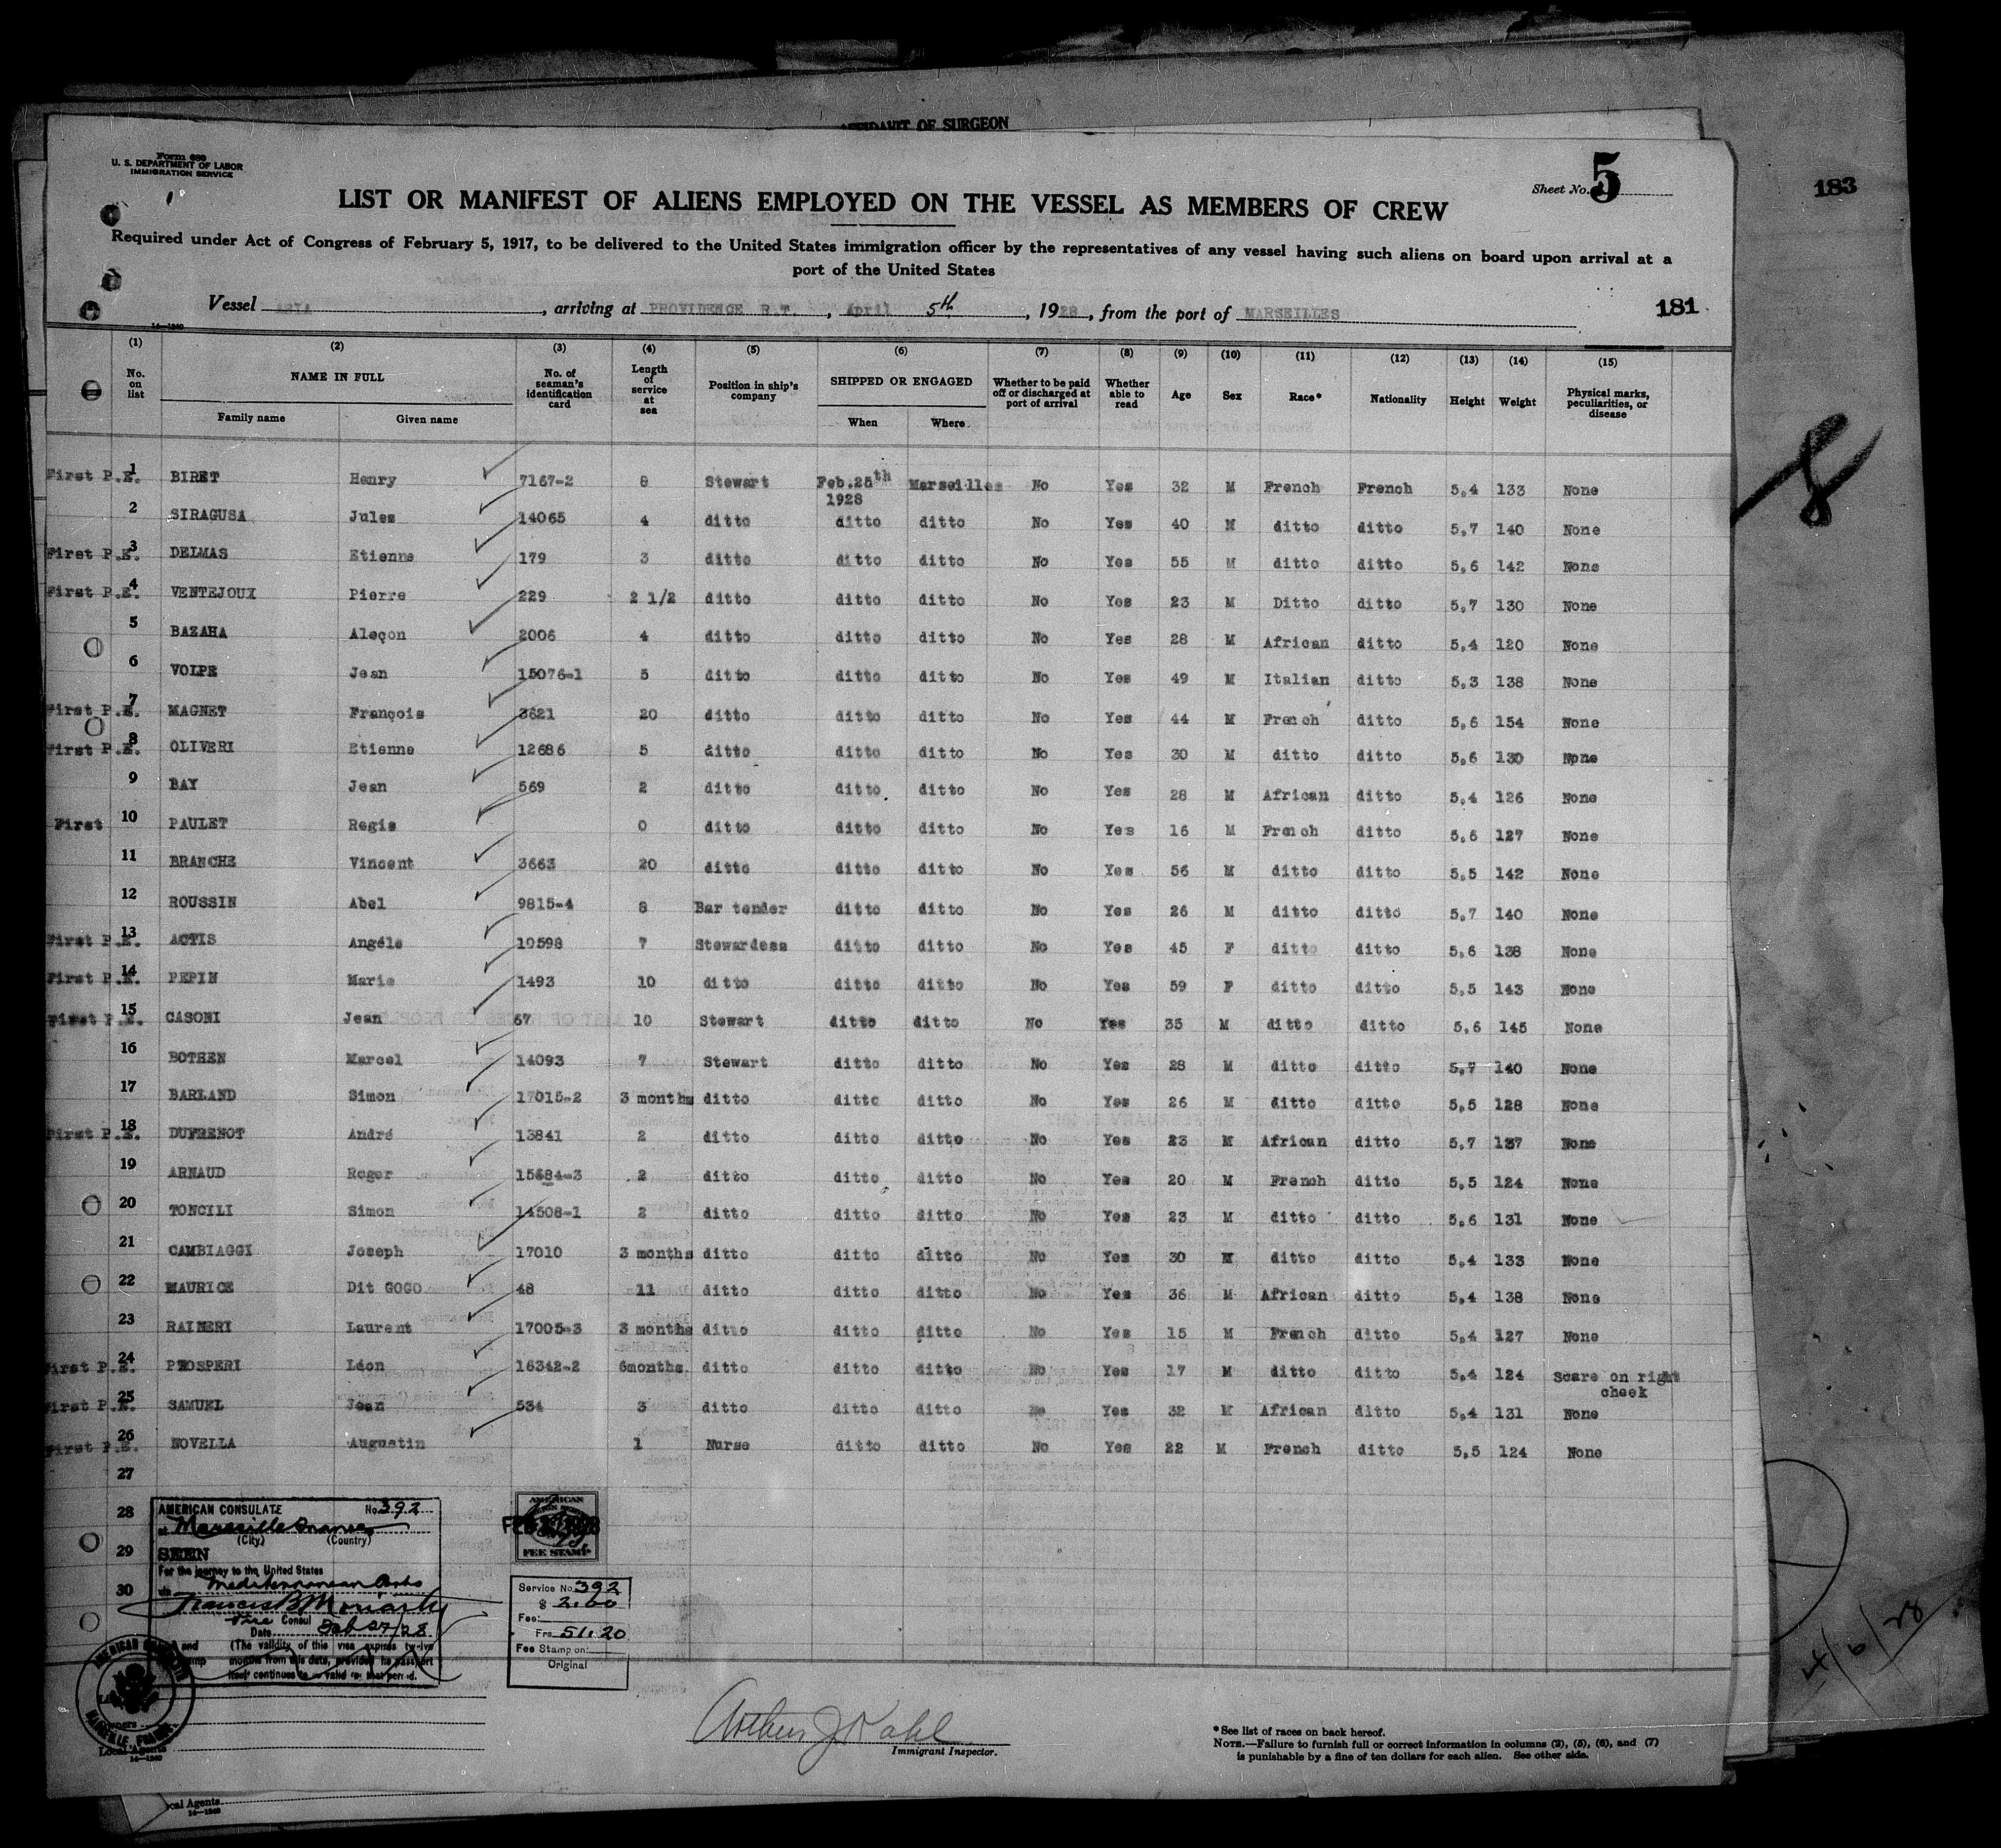 AFFIDAVIT OF SURGEON
Form 689
U. S. DEPARTMENT OF LABOR
IMMIGRATION SERVICE
Sheet No. 5
183
LIST OR MANIFEST OF ALIENS EMPLOYED ON THE VESSEL AS MEMBERS OF CREW
Required under Act of Congress of February 5, 1917, to be delivered to the United States immigration officer by the representatives of any vessel having such aliens on board upon arrival at a
port of the United States
Vessel ASIA, arriving at PROVIDENCE R.I., April 5th, 1928, from the port of MARSEILLES
181
14—1240
(1) (2) (3) (4) (5) (6) (7) (8) (9) (10) (11) (12) (13) (14) (15)
No. on list NAME IN FULL No. of seaman's identification card Length of service at sea Position in ship's company SHIPPED OR ENGAGED Whether to be paid off or discharged at port of arrival Whether able to read Age Sex Race* Nationality Height Weight Physical marks, peculiarities, or disease
Family name Given name When Where
First P.E. 1 BIRET Henry 7167-2 8 Stewart Feb.25th 1928 Marseilles No Yes 32 M French French 5,4 133 None
2 SIRAGUSA Jules 14065 4 ditto ditto ditto No Yes 40 M ditto ditto 5,7 140 None
First P.E. 3 DELMAS Etienne 179 3 ditto ditto ditto No Yes 55 M ditto ditto 5,6 142 None
First P.E. 4 VENTEJOUX Pierre 229 2 1/2 ditto ditto ditto No Yes 23 M Ditto ditto 5,7 130 None
5 BAZAHA Aleçon 2006 4 ditto ditto ditto No Yes 28 M African ditto 5,4 120 None
6 VOLPE Jean 15076-1 5 ditto ditto ditto No Yes 49 M Italian ditto 5,3 138 None
First P.E. 7 MAGNET François 3621 20 ditto ditto ditto No Yes 44 M French ditto 5,6 154 None
First P.E. 8 OLIVERI Etienne 12686 5 ditto ditto ditto No Yes 30 M ditto ditto 5,6 130 None
9 BAY Jean 569 2 ditto ditto ditto No Yes 28 M African ditto 5,4 126 None
First 10 PAULET Regis 0 ditto ditto ditto No Yes 16 M French ditto 5,6 127 None
11 BRANCHE Vincent 3663 20 ditto ditto ditto No Yes 56 M ditto ditto 5,5 142 None
12 ROUSSIN Abel 9815-4 8 Bar tender ditto ditto No Yes 26 M ditto ditto 5,7 140 None
First P.E. 13 ACTIS Angéle 10598 7 Stewardess ditto ditto No Yes 45 F ditto ditto 5,6 138 None
First P.E. 14 PEPIN Marie 1493 10 ditto ditto ditto No Yes 59 F ditto ditto 5,5 143 None
First P.E. 15 CASONI Jean 67 10 Stewart ditto ditto No Yes 35 M ditto ditto 5,6 145 None
16 BOTHEN Marcel 14093 7 Stewart ditto ditto No Yes 28 M ditto ditto 5,7 140 None
17 BARLAND Simon 17015-2 3 months ditto ditto ditto No Yes 26 M ditto ditto 5,5 128 None
First P.E. 18 DUFRENOT André 13841 2 ditto ditto ditto No Yes 23 M African ditto 5,7 137 None
19 ARNAUD Roger 15684-3 2 ditto ditto ditto No Yes 20 M French ditto 5,5 124 None
20 TONCILI Simon 14508-1 2 ditto ditto ditto No Yes 23 M ditto ditto 5,6 131 None
21 CAMBIAGGI Joseph 17010 3 months ditto ditto ditto No Yes 30 M ditto ditto 5,4 133 None
22 MAURICE Dit GOGO 48 11 ditto ditto ditto No Yes 36 M African ditto 5,4 138 None
23 RAINERI Laurent 17005-3 3 months ditto ditto ditto No Yes 15 M French ditto 5,4 127 None
First P.E. 24 PROSPERI Léon 16342-2 6months. ditto ditto ditto No Yes 17 M ditto ditto 5,4 124 Scare on right cheek
First P.E. 25 SAMUEL Jean 534 3 ditto ditto ditto No Yes 32 M African ditto 5,4 131 None
First P.E. 26 NOVELLA Augustin 1 Nurse ditto ditto No Yes 22 M French ditto 5,5 124 None
27
28
29
30
AMERICAN CONSULATE No. 392
at Marseille France
(City) (Country)
SEEN
For the journey to the United States
via Mediterranean Ports
Francis B Moriarty
Vice Consul
Date Feb 27/28
(The validity of this visa expires twelve
months from this date, provided the passport
itself continues to be valid for that period.
AMERICAN
FEE STAMP
Service No. 392
$ 2.00
Fee:
Frs. 51.20
Fee Stamp on:
Original
Local Agents
14—1240
Arthur J Kahl
Immigrant Inspector.
*See list of races on back hereof.
NOTE.—Failure to furnish full or correct information in columns (2), (5), (6), and (7)
is punishable by a fine of ten dollars for each alien. See other side.
4/6/28
cal Agents
14—1240